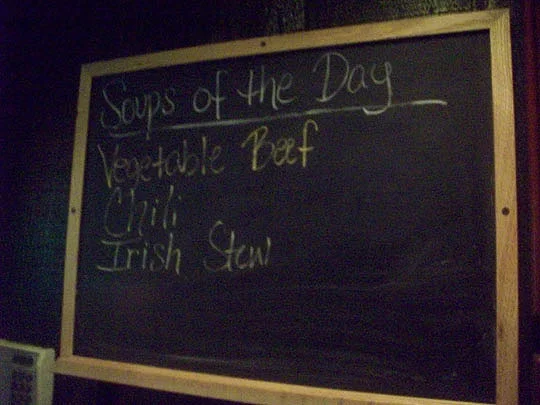 Soups of the Day
Vegetable Beef
Chili
Irish Stew